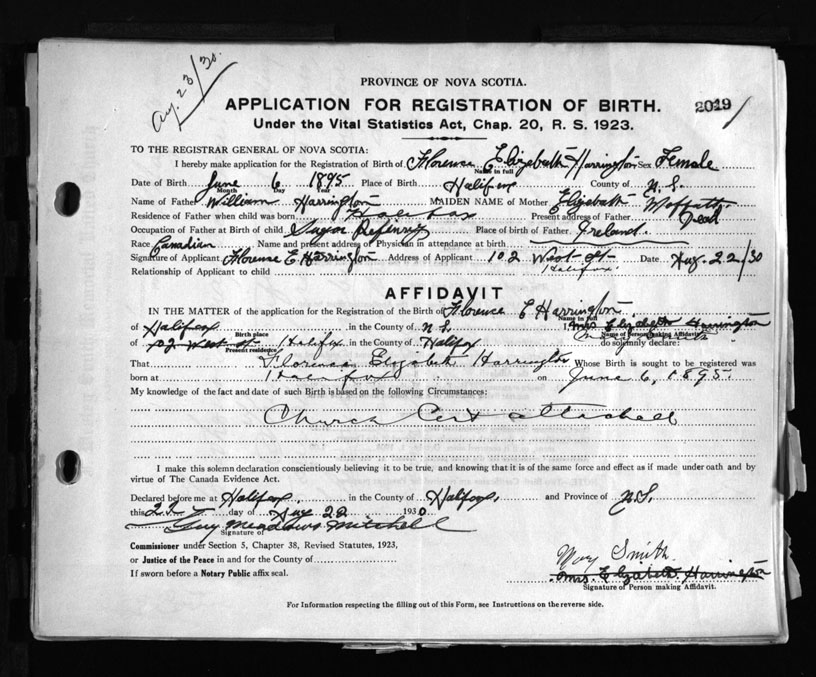 Aug. 23/30.
PROVINCE OF NOVA SCOTIA.
APPLICATION FOR REGISTRATION OF BIRTH.
2049
Under the Vital Statistics Act, Chap. 20, R. S. 1923.
TO THE REGISTRAR GENERAL OF NOVA SCOTIA:
I hereby make application for the Registration of Birth of Florence Elizabeth Harrington Sex Female
Name in full
Date of Birth June 6 1895 Place of Birth Halifax County of N. S.
Month Day Year
Name of Father William Harrington MAIDEN NAME of Mother Elizabeth Moffatt
Residence of Father when child was born Halifax Present address of Father Dead
Occupation of Father at Birth of child Sugar Refinery Place of birth of Father Ireland.
Race Canadian Name and present address of Physician in attendance at birth
Signature of Applicant Florence E Harrington Address of Applicant 102 West St Halifax. Date Aug. 22/30
Relationship of Applicant to child
AFFIDAVIT
IN THE MATTER of the application for the Registration of the Birth of Florence E Harrington.
Name in full
of Halifax in the County of N S. Mrs Elizabeth Harrington
Birth place Name of Person making Affidavit.
of West St Halifax in the County of Halifax do solemnly declare:
Present residence
That Florence Elizabeth Harrington Whose Birth is sought to be registered was
born at Halifax on June 6, 1895.
My knowledge of the fact and date of such Birth is based on the following Circumstances:
Church Cert attached
I make this solemn declaration conscientiously believing it to be true, and knowing that it is of the same force and effect as if made under oath and by
virtue of The Canada Evidence Act.
Declared before me at Halifax in the County of Halifax, and Province of N.S.
this 22 day of Aug 22 1930
Guy Meadows Mitchell
Signature of
Commissioner under Section 5, Chapter 38, Revised Statutes, 1923,
or Justice of the Peace in and for the County of
If sworn before a Notary Public affix seal.
May Smith.
Mrs. Elizabeth Harrington
Signature of Person making Affidavit.
For Information respecting the filling out of this Form, see Instructions on the reverse side.